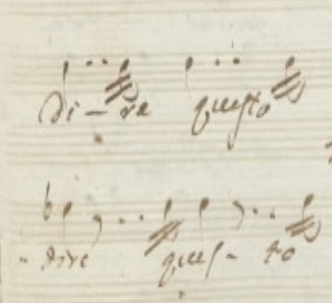 di-re questo
- dire ques-to